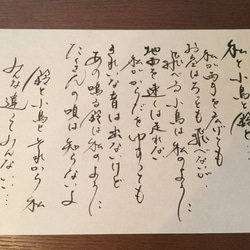 私と小鳥と鈴と…
私が両手を広げても
お空はちっとも飛べないが
飛べる小鳥は私のように…
地面を速くは走れない
私がからだをゆすっても
きれいな音は出ないけど
あの鳴る鈴は私のように…
たくさんの唄は知らないよ
鈴と小鳥とそれから私
みんな違ってみんないい…